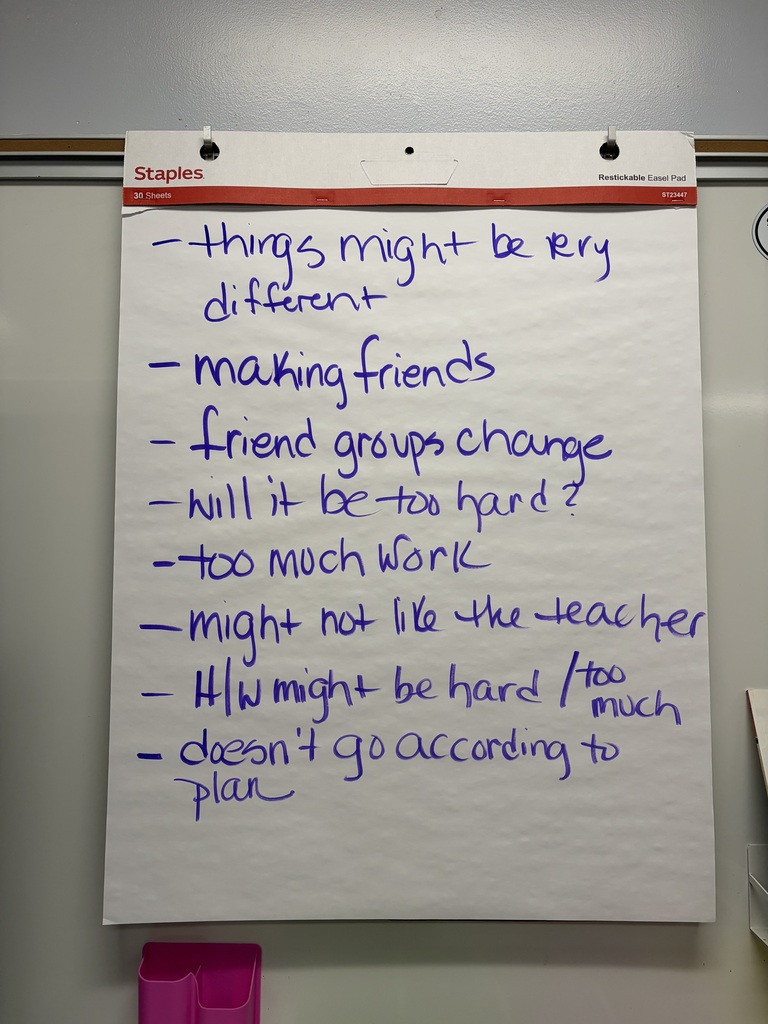 Staples
Restickable Easel Pad
30 Sheets
ST23447
- things might be very
different
- making friends
- friend groups change
- will it be too hard?
- too much work
- might not like the teacher
- H/W might be hard / too
much
- doesn't go according to
plan